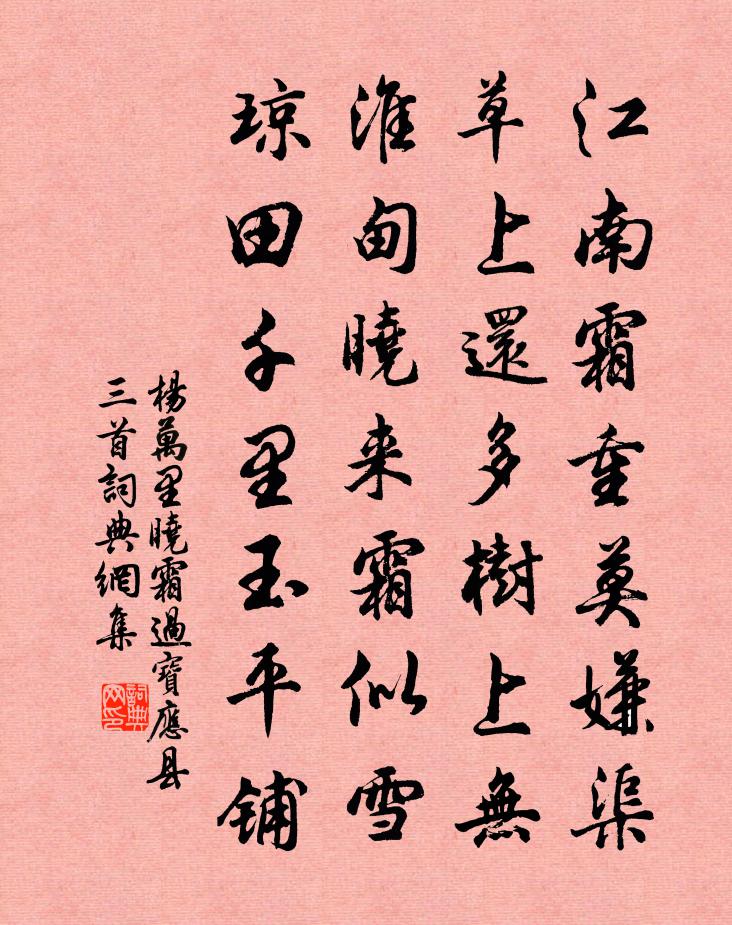 江南霜重莫嫌渠
草上還多樹上無
淮甸曉来霜似雪
琼田千里玉平铺
楊萬里曉霜過寶應县
三首詞典網集
詞典网印